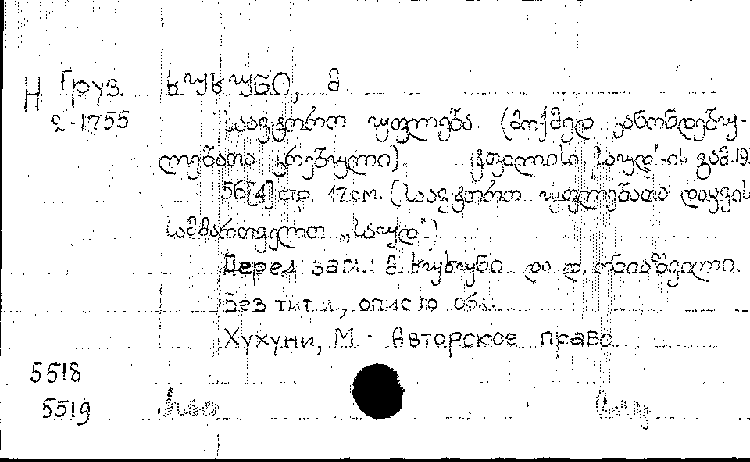 Н Груз. ხუხუნი, მ
2-1755
საავტორო უფლება. (მოქმედ კანონდებუ-
ლებათა კრებული). ტფილისი, "საუდ"-ის გამ. 19
56[4] стр. 17 см. (საავტორო უფლებათა დაცვის
სამმართველო „საუდ")
Перед загл.: მ. ხუხუნი და დ. იოაშვილი.
Без тит. л., опис. по обл.
Хухуни, М. Авторское право.
5518
5519